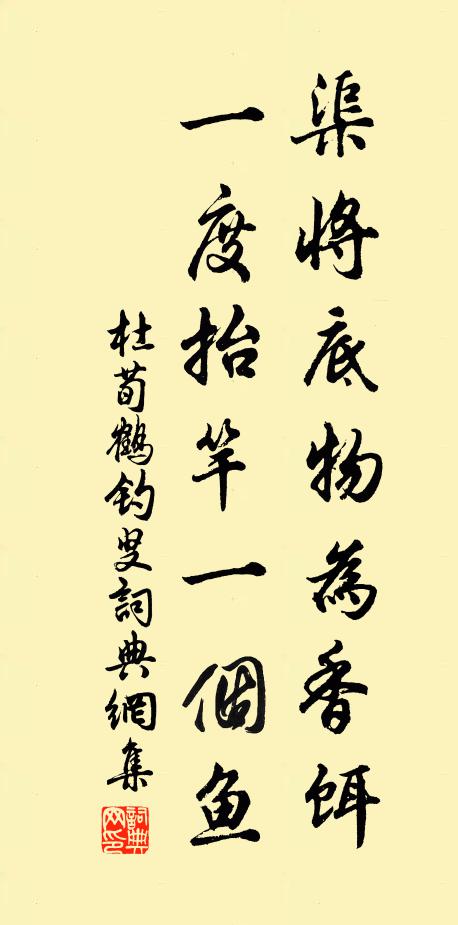 渠將底物為香餌
一度抬竿一個魚
杜荀鶴釣叟詞典網集
詞典网印